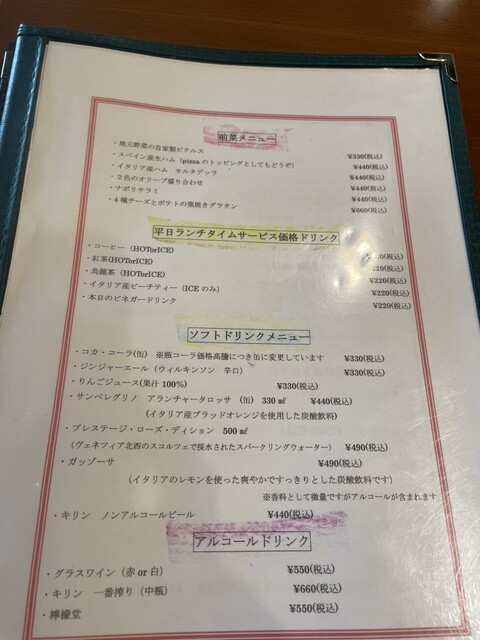 前菜メニュー
・地元野菜の自家製ピクルス ¥330(税込)
・スペイン産生ハム (pizzaのトッピングとしてもどうぞ) ¥440(税込)
・イタリア産ハム モルタデッラ ¥440(税込)
・２色のオリーブ盛り合わせ ¥440(税込)
・ナポリサラミ ¥440(税込)
・４種チーズとポテトの窯焼きグラタン ¥660(税込)
平日ランチタイムサービス価格ドリンク
・コーヒー (HOTorICE) 20(税込)
・紅茶(HOTorICE) 220(税込)
・烏龍茶 (HOTorICE) ¥220(税込)
・イタリア産ピーチティー (ICEのみ) ¥220(税込)
・本日のビネガードリンク ¥220(税込)
ソフトドリンクメニュー
・コカ・コーラ(缶) ※瓶コーラ価格高騰につき缶に変更しています ¥330(税込)
・ジンジャーエール (ウィルキンソン 辛口) ¥330(税込)
・りんごジュース(果汁100%) ¥330(税込)
・サンペレグリノ アランチャータロッサ (缶) 330㎖ ¥440(税込)
(イタリア産ブラッドオレンジを使用した炭酸飲料)
・プレステージ・ローズ・ディション 500㎖
(ヴェネツィア北西のスコルツェで採水されたスパークリングウォーター) ¥490(税込)
・ガッゾーサ ¥490(税込)
(イタリアのレモンを使った爽やかですっきりとした炭酸飲料です)
※香料として微量ですがアルコールが含まれます
・キリン ノンアルコールビール ¥440(税込)
アルコールドリンク
・グラスワイン (赤or白) ¥550(税込)
・キリン 一番搾り (中瓶) ¥660(税込)
・檸檬堂 ¥550(税込)